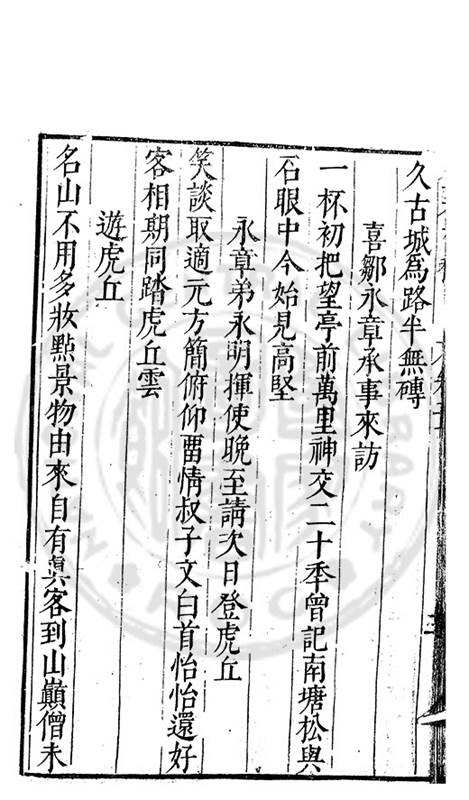 久古城為路半無磚
喜鄒永章承事來訪
一杯初把望亭前萬里神交二十季曾記南塘松與
石眼中今始見高堅
永章弟永明揮使晚至請次日登虎丘
笑談取適元方簡俯仰畱情叔子文白首怡怡還好
客相期同踏虎丘雲
遊虎丘
名山不用多妝點景物由來自有真客到山巔僧未